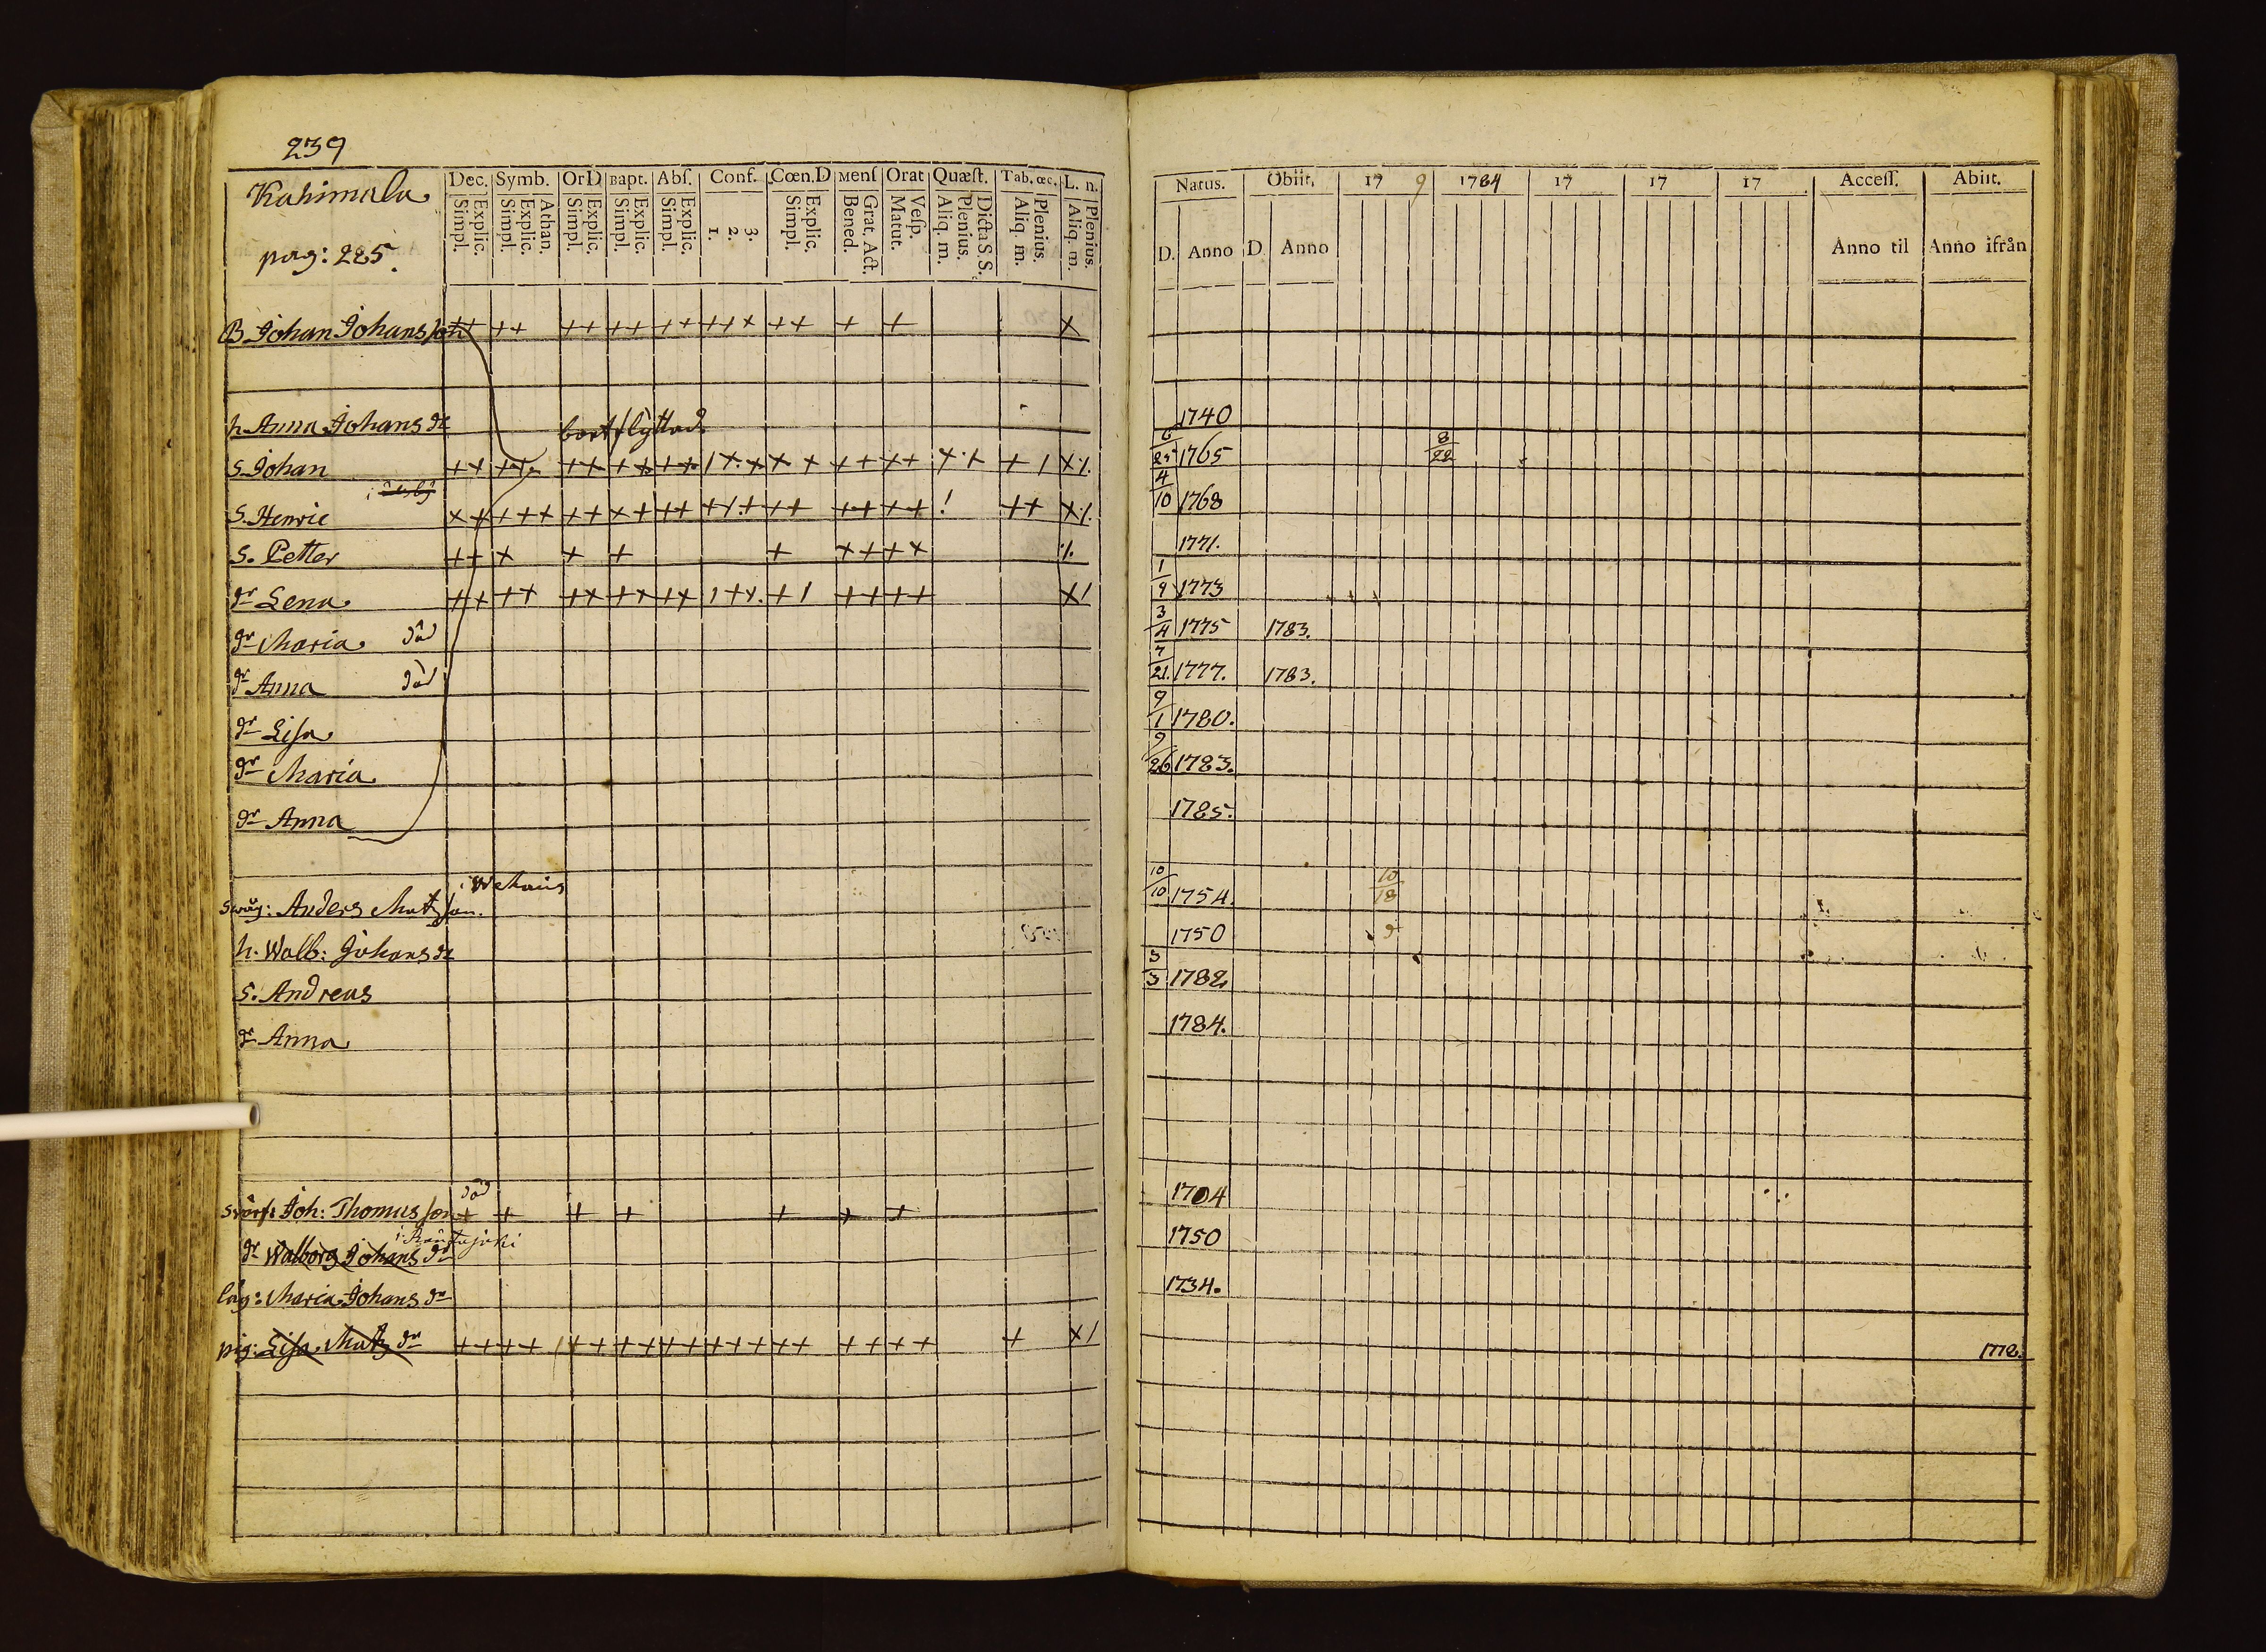 239
Kahimala
pag: 225.
Dec. Symb. Or D Bapt. Abſ. Conf. Cœn. D Menſ Orat Quæſt. Tab. œc. L. n.
Explic. Simpl. Athan. Explic. Simpl. Explic. Simpl. Explic. Simpl. Explic. Simpl. 3. 2. 1. Explic. Simpl. Grat. Act. Bened. Veſp. Matut. Dicta S S. Plenius. Aliq. m. Plenius. Aliq. m. Plenius. Aliq. m.
Natus. Obiit. 17 9 1784 17 17 17 Acceſſ. Abiit.
D. Anno D. Anno Anno til Anno ifrån
B. Johan Johansson ++ ++ ++ ++ ++ ++x ++ + + x
h. Anna Johans dr bortflyttad. 1740
S. Johan 6/25 1765 8/22
S. Henric 4/10 1768
S. Petter ++ x + + + x++x 1771.
dr Lena 1/9 1773
dr Maria död 3/4 1775 1783.
dr Anna död 7/21. 1777. 1783.
dr Lisa 9/1 1780.
dr Maria 9/26 1783.
dr Anna 1785.
Swåg: Anders Matsson. 10/10 1754. 10/18
h. Walb: Johans dr 1750
S. Andreas 3/3 1782
dr Anna 1784.
död
Svärf: Joh: Thomusson + + + + + + + 1704
dr Walborg Johans dr 1750
låg: Maria Johans dr 1734.
pig: Lisa Mats dr ++ ++ ++ ++ ++ +++ ++ ++ ++ + x/ 1772.